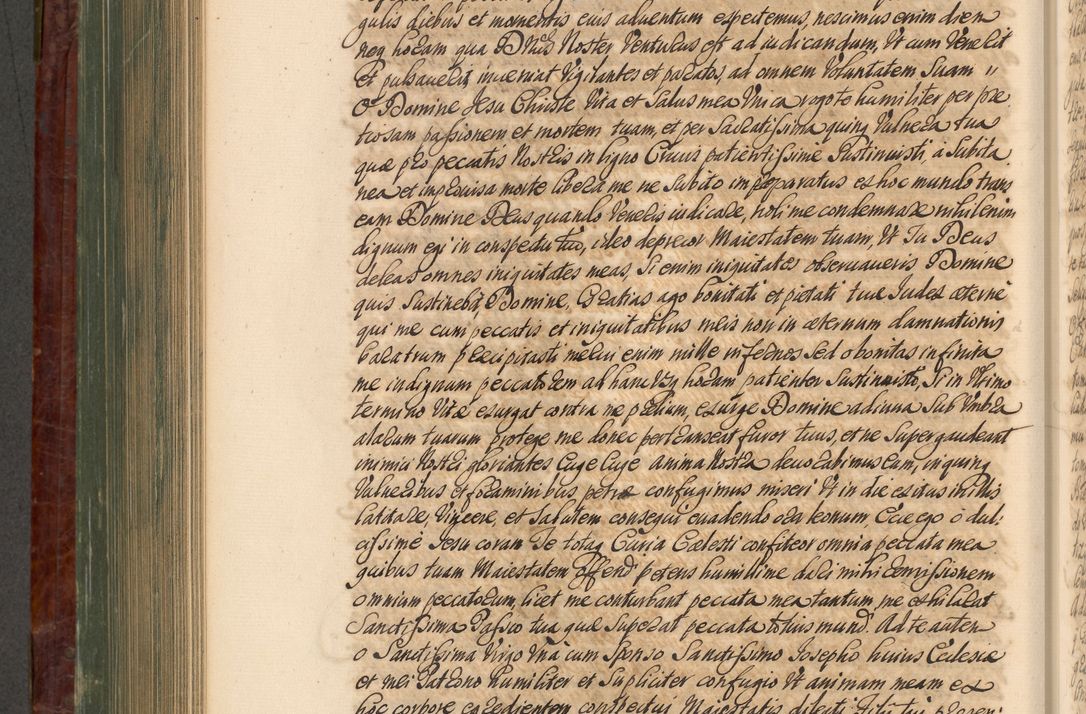 gulis diebus et momentis eius aduentum expectemus, nescimus enim diem
neq horam qua Dnus Noster Venturus est ad iudicandum, Ut cum Venerit
et pulsauerit, inueniat Vigilantes et paratos, ad omnem Voluntatem Suam "
O Domine Jesu Christe Vita et Salus mea Unica rogo te humiliter per pre
tiosam passionem et mortem tuam, et per Sacratissima quinq Vulnera tua
quæ pro peccatis Nostris in ligno Crucis patientissime Sustinuisti, á Subita
nea et improuisa morte libera me ne Subito imparatus ex hoc mundo trans
eam Domine Deus quando Veneris iudicare, noli me condemnare nihil enim
dignum egi in conspectu tuo, ideo deprecor Maiestatem tuam, Ut Tu Deus
deleas omnes iniquitates meas, Si enim iniquitates obseruaueris Domine
quis Sustinebit, Domine, Gratias ago bonitati et pietati tuæ Judex æterne
qui me cum peccatis et iniquitatibus meis non in æternum damnationis
baratrum præcipitasti merui enim mille infernos Sed o bonitas infinita
me indignum peccatorem ad hanc usq horam patienter Sustinuisti, Si in Ultimo
termino Vitæ exurgat contra me prælium, exurge Domine adiuua Sub Umbra
alarum tuarum protege me donec pertranseat furor tuus, et ne Supergaudeant
inimici Nostri gloriantes Euge Euge Anima Nostra deuorabimus eam, in quinq
Vulneribus et foraminibus petræ confugimus miseri Ut in die exitus in illis
latitare, Vincere, et Salutem consequi euadendo ora leonum, Ecce ego ó dul:
cissime Jesu coram Te totaq Curia Cælesti confiteor omnia peccata mea
quibus tuam Maiestatem offendi petens humillime dari mihi remissionem
omnium peccatorum, licet me conturbant peccata mea tantum, me exhilarat
Sanctissima Passio tua quæ Superat peccata totius mundi. Ad te autem
o Sanctissima Virgo Una cum Sponso Sanctissimo Josepho huius Ecclesiæ
et mei Patrono humiliter et Supliciter confugio Ut animam meam ex
hoc corpore egredientem conspectui Maiestatis dilecti Filii tui præsen: